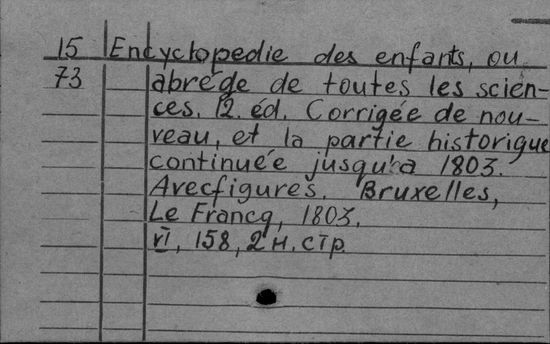 15 Encyclopedie des enfants, ou
73 abrégé de toutes les scien-
ces. 12. éd. Corrigée de nou-
veau, et la partie historigue
continuée jusqu'a 1803.
Avecfigures. Bruxelles,
Le Francq, 1803.
VI, 158, 2 н. стр.